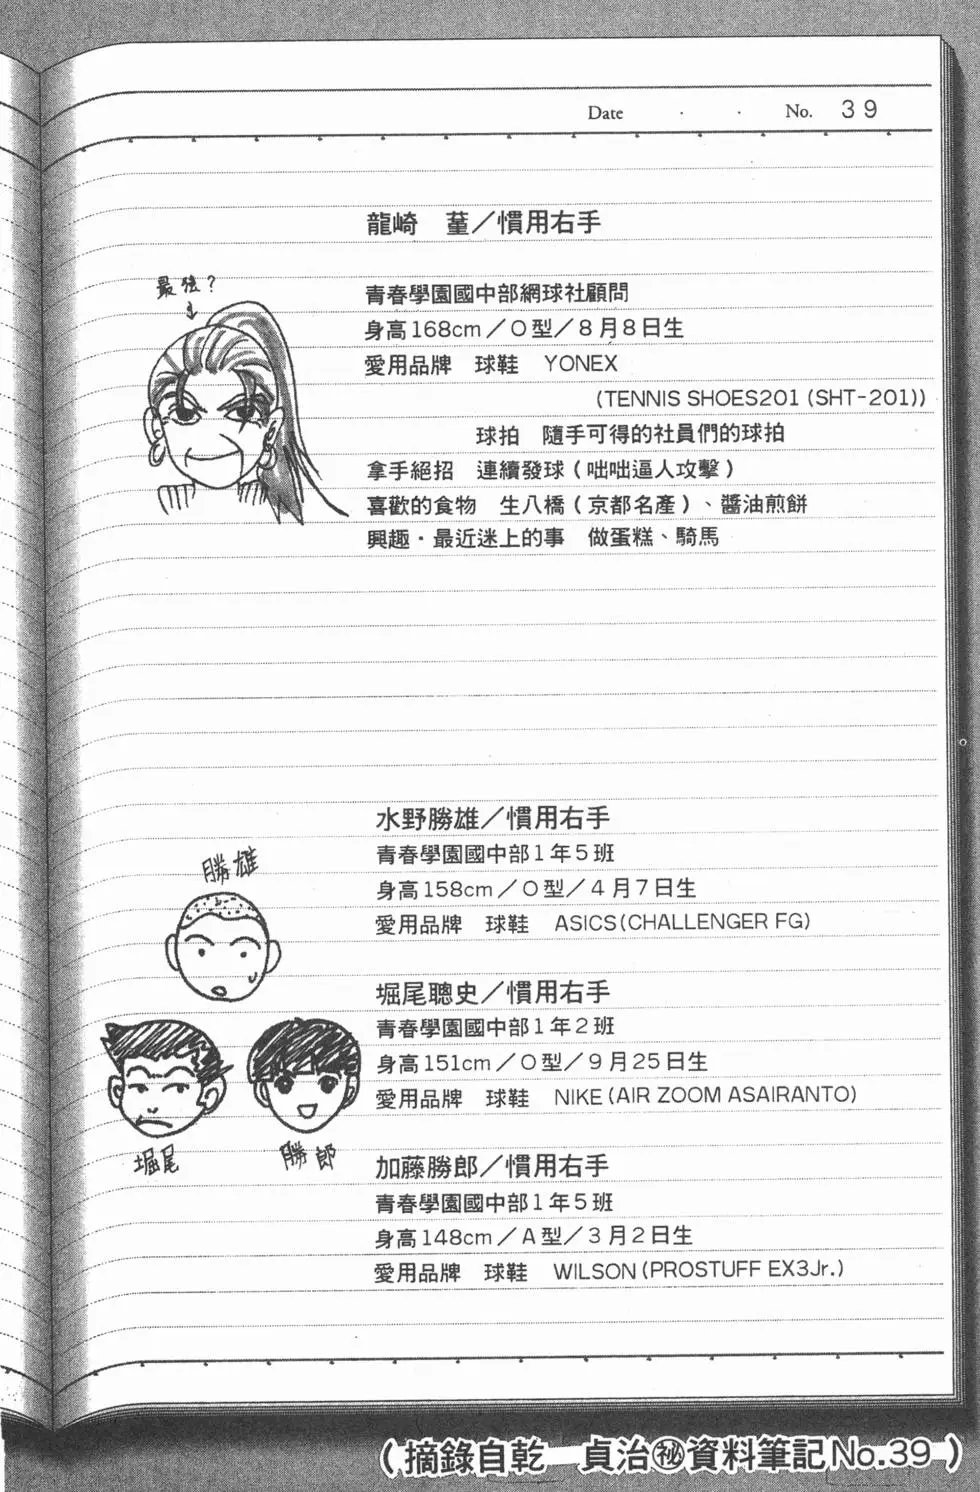 Date . . No. 39
龍崎 菫／慣用右手
最強？
青春學園國中部網球社顧問
身高168cm／O型／8月8日生
愛用品牌 球鞋 YONEX
(TENNIS SHOES201 (SHT-201))
球拍 隨手可得的社員們的球拍
拿手絕招 連續發球（咄咄逼人攻擊）
喜歡的食物 生八橋（京都名產）、醬油煎餅
興趣・最近迷上的事 做蛋糕、騎馬
水野勝雄／慣用右手
青春學園國中部1年5班
身高158cm／O型／4月7日生
愛用品牌 球鞋 ASICS(CHALLENGER FG)
勝雄
堀尾聰史／慣用右手
青春學園國中部1年2班
身高151cm／O型／9月25日生
愛用品牌 球鞋 NIKE(AIR ZOOM ASAIRANTO)
堀尾
勝郎
加藤勝郎／慣用右手
青春學園國中部1年5班
身高148cm／A型／3月2日生
愛用品牌 球鞋 WILSON(PROSTUFF EX3Jr.)
（摘錄自乾 貞治㊙資料筆記No.39）